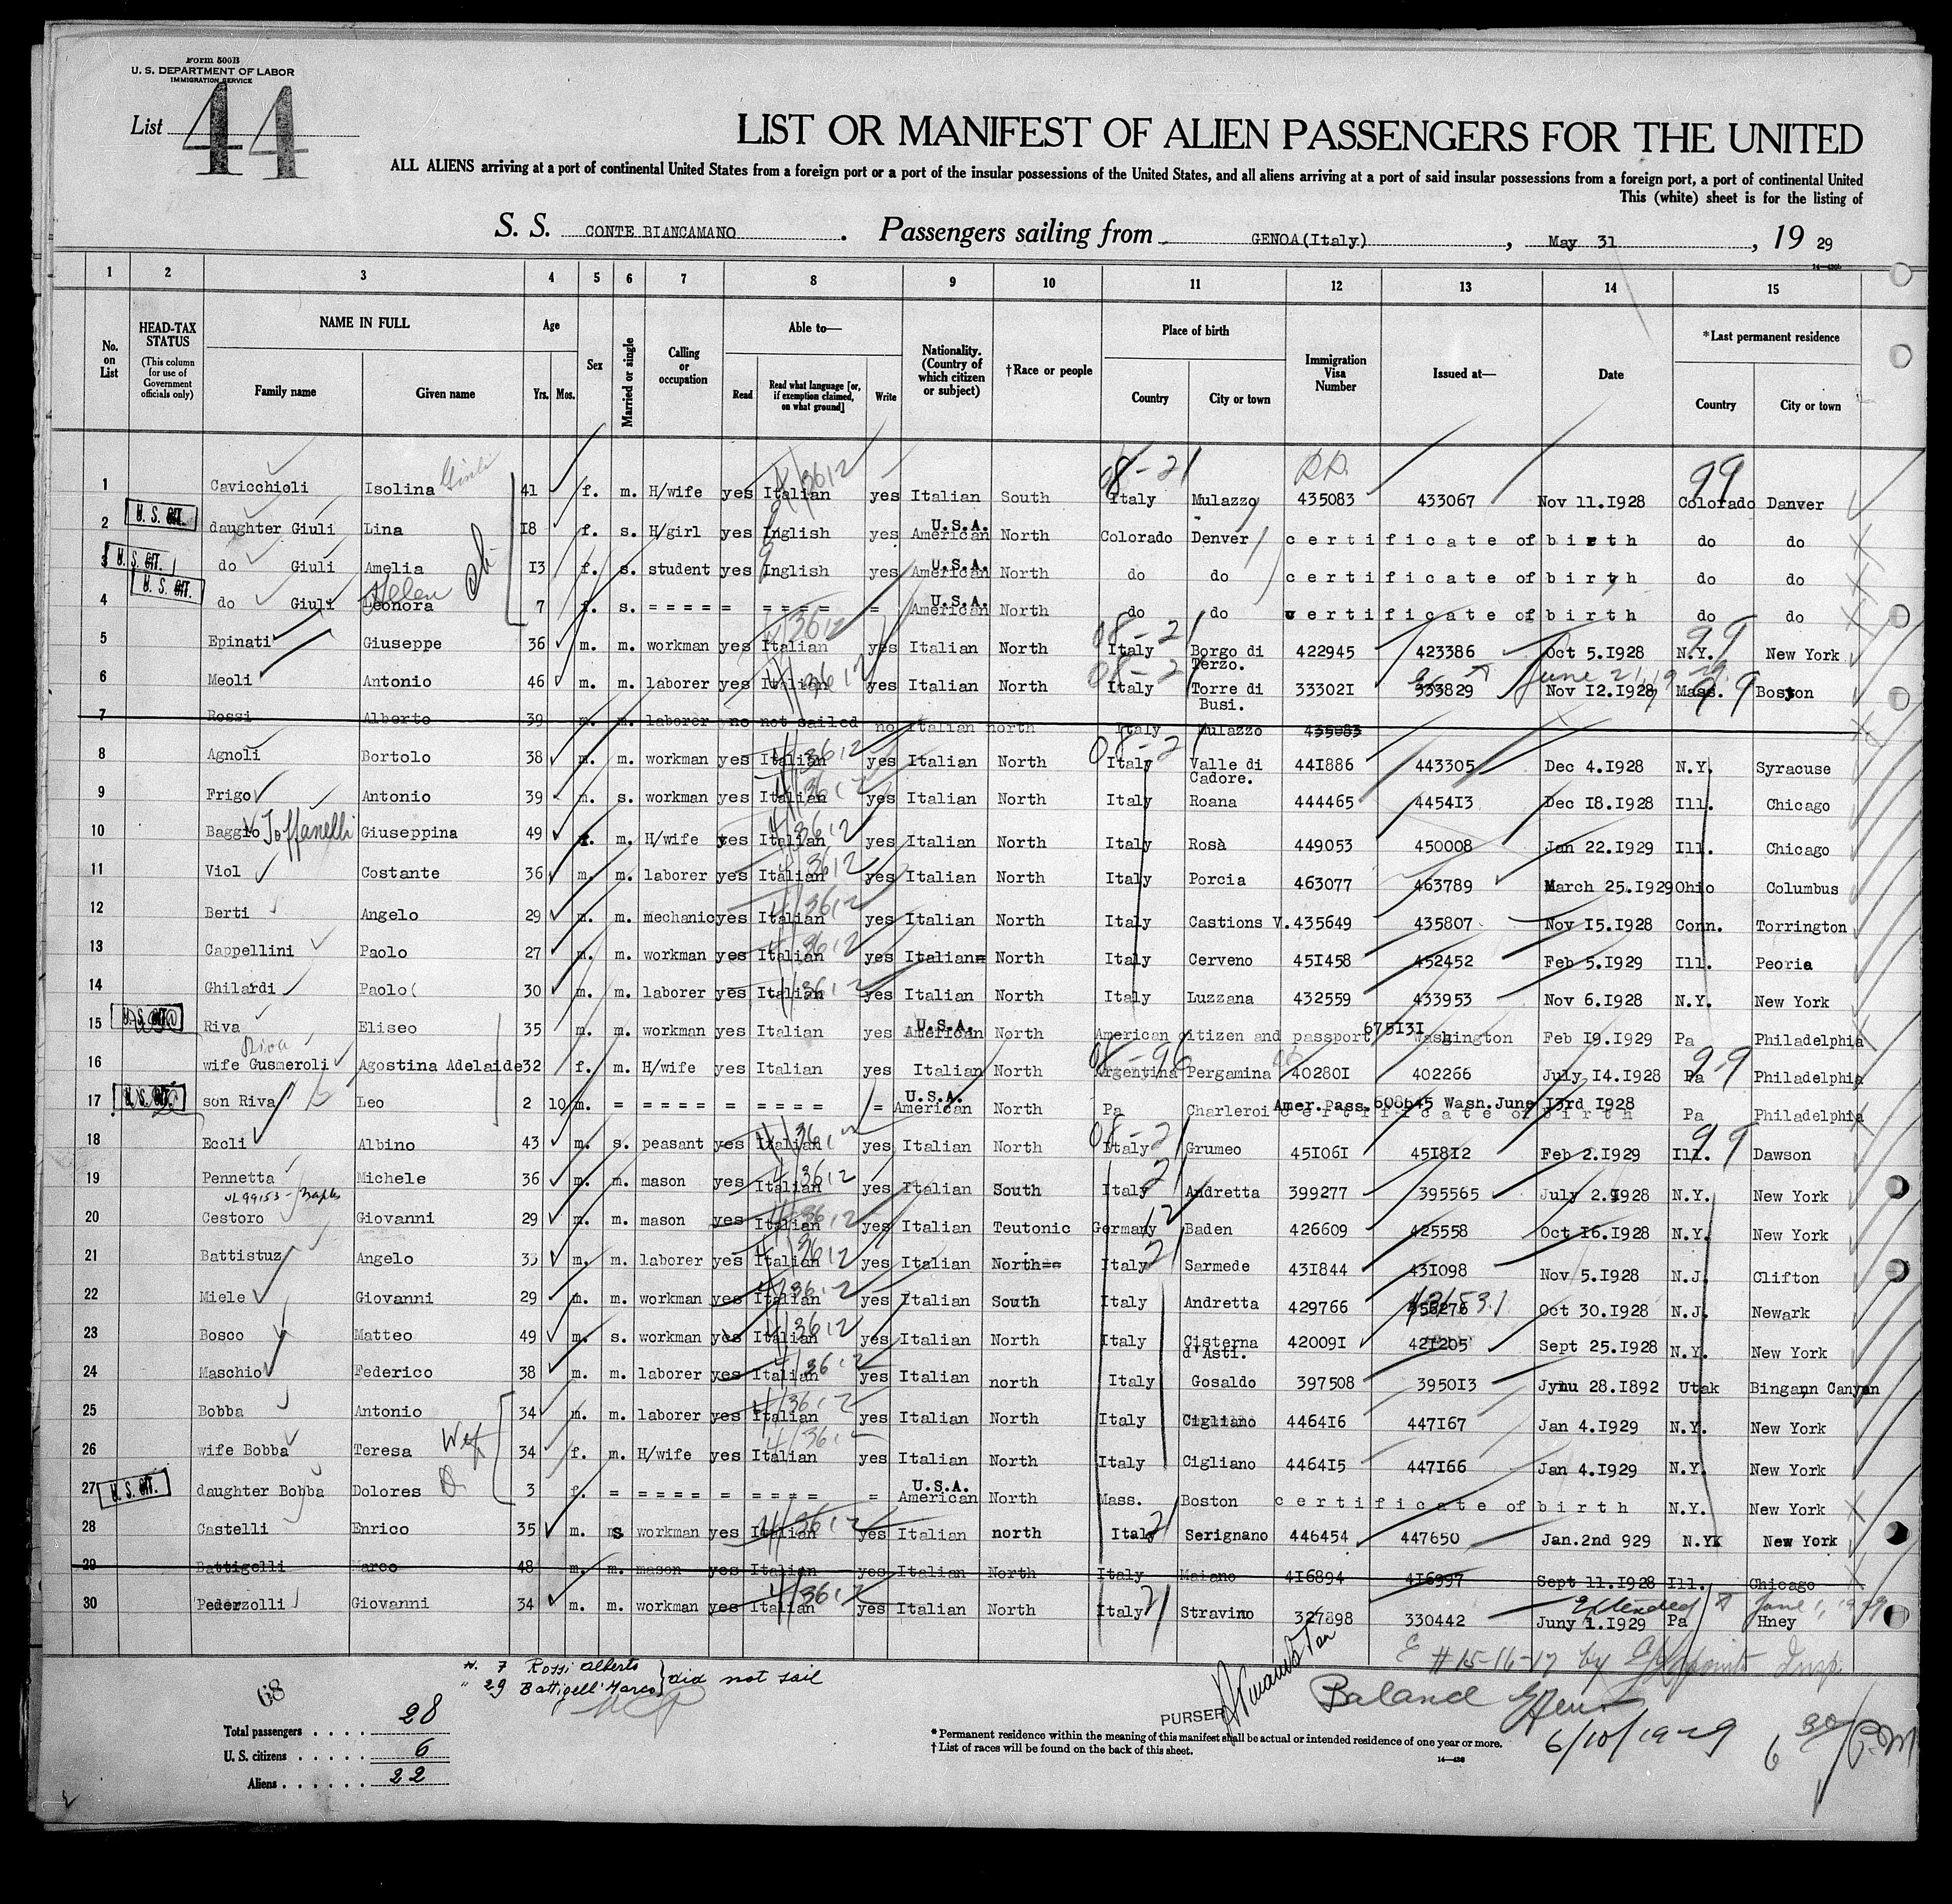 Form 500B
U. S. DEPARTMENT OF LABOR
IMMIGRATION SERVICE
List 44
LIST OR MANIFEST OF ALIEN PASSENGERS FOR THE UNITED
ALL ALIENS arriving at a port of continental United States from a foreign port or a port of the insular possessions of the United States, and all aliens arriving at a port of said insular possessions from a foreign port, a port of continental United
This (white) sheet is for the listing of
S. S. CONTE BIANCAMANO . Passengers sailing from GENOA(Italy) , May 31 , 19 29
1 2 3 4 5 6 7 8 9 10 11 12 13 14 15
No. on List
HEAD-TAX STATUS (This column for use of Government officials only)
NAME IN FULL
Family name Given name
Age
Yrs. Mos.
Sex
Married or single
Calling or occupation
Able to—
Read Read what language [or, if exemption claimed, on what ground] Write
Nationality. (Country of which citizen or subject)
†Race or people
Place of birth
Country City or town
Immigration Visa Number
Issued at—
Date
*Last permanent residence
Country City or town
1 Cavicchioli Isolina Giuli 41 f. m. H/wife yes Italian 4/3612 yes Italian South 08-21 Italy Mulazzo 435083 433067 Nov 11.1928 99 Colorado Danver
2 U. S. CIT. daughter Giuli Lina 18 f. s. H/girl yes Inglish yes U.S.A. American North Colorado Denver certificate of birth do do
3 U. S. CIT. do Giuli Amelia 13 f. s. student yes Inglish yes U.S.A. American North do do certificate of birth do do
4 U. S. CIT. do Giuli Helen Leonora 7 f. s. = = = = = = = = = = U.S.A. American North do do certificate of birth do do
5 Epinati Giuseppe 36 m. m. workman yes Italian 4/3612 yes Italian North 08-21 Italy Borgo di Terzo. 422945 423386 Oct 5.1928 99 N.Y. New York
6 Meoli Antonio 46 m. m. laborer yes Italian 4/3612 yes Italian North 08-21 Italy Torre di Busi. 333021 333829 June 21, 19 29 Nov 12.1928 Mass. 99 Boston
7 Rossi Alberto 39 m. m. laborer no not sailed no Italian north Italy Mulazzo 435083
8 Agnoli Bortolo 38 m. m. workman yes Italian 4/3612 yes Italian North 08-21 Italy Valle di Cadore. 441886 443305 Dec 4.1928 N.Y. Syracuse
9 Frigo Antonio 39 m. s. workman yes Italian 4/3612 yes Italian North Italy Roana 444465 445413 Dec 18.1928 Ill. Chicago
10 Baggio Toffanelli Giuseppina 49 f. m. H/wife yes Italian 4/3612 yes Italian North Italy Rosà 449053 450008 Jan 22.1929 Ill. Chicago
11 Viol Costante 36 m. m. laborer yes Italian 4/3612 yes Italian North Italy Porcia 463077 463789 March 25.1929 Ohio Columbus
12 Berti Angelo 29 m. m. mechanic yes Italian 4/3612 yes Italian North Italy Castions V. 435649 435807 Nov 15.1928 Conn. Torrington
13 Cappellini Paolo 27 m. m. workman yes Italian 4/3612 yes Italian= North Italy Cerveno 451458 452452 Feb 5.1929 Ill. Peoria
14 Ghilardi Paolo( 30 m. m. laborer yes Italian 4/3612 yes Italian North Italy Luzzana 432559 433953 Nov 6.1928 N.Y. New York
15 U. S. CIT. Riva Eliseo 35 m. m. workman yes Italian yes U.S.A. American North American citizen and passport 675131 Washington Feb 19.1929 Pa Philadelphia
16 Riva wife Gusmeroli Agostina Adelaide 32 f. m. H/wife yes Italian yes Italian North Argentina Pergamina 402801 402266 July 14.1928 Pa 99 Philadelphia
17 U. S. CIT. son Riva Leo 2 10 m. = = = = = = = = = = = U.S.A. American North Pa Charleroi certificate of birth Amer.Pass.608645 Wash.June 13rd 1928 Pa Philadelphia
18 Eccli Albino 43 m. s. peasant yes Italian 4/3612 yes Italian North 08-21 Italy Grumeo 451061 451812 Feb 2.1929 99 Ill. Dawson
19 Pennetta Michele 36 m. m. mason yes Italian 4/3612 yes Italian South Italy 21 Andretta 399277 395565 July 2.1928 N.Y. New York
20 VL 99153 - Naples Cestoro Giovanni 29 m. m. mason yes Italian 4/3612 yes Italian Teutonic Germany 12 Baden 426609 425558 Oct 16.1928 N.Y. New York
21 Battistuz Angelo 33 m. m. laborer yes Italian 4/3612 yes Italian North== Italy 21 Sarmede 431844 431098 Nov 5.1928 N.J. Clifton
22 Miele Giovanni 29 m. m. workman yes Italian 4/3612 yes Italian South Italy Andretta 429766 Oct 30.1928 N.J. Newark
23 Bosco Matteo 49 m. s. workman yes Italian 4/3612 yes Italian North Italy Cisterna d'Asti. 420091 421205 Sept 25.1928 N.Y. New York
24 Maschio Federico 38 m. m. laborer yes Italian 4/3612 yes Italian north Italy Gosaldo 397508 395013 Jynu 28.1892 Utak Bingann Canyan
25 Bobba Antonio 34 m. m. laborer yes Italian 4/3612 yes Italian North Italy Cigliano 446416 447167 Jan 4.1929 N.Y. New York
26 wife Bobba Teresa 34 f. m. H/wife yes Italian 4/3612 yes Italian North Italy Cigliano 446415 447166 Jan 4.1929 N.Y. New York
27 U. S. CIT. daughter Bobba Dolores 3 f. = = = = = = = = = = U.S.A. American North Mass. Boston certificate of birth N.Y. New York
28 Castelli Enrico 35 m. s workman yes Italian 4/3612 yes Italian north Italy 21 Serignano 446454 447650 Jan.2nd 929 N.YK New York
29 Battigelli Marco 48 m. m. mason yes Italian yes Italian North Italy Maiano 416894 416997 Sept 11.1928 Ill. Chicago
30 Pederzolli Giovanni 34 m. m. workman yes Italian 4/3612 yes Italian North Italy 21 Stravino 327898 330442 Extended to June 1, 1929 Juny 1.1929 Pa Hney
# 15-16-17 by Insp
N. 7 Rossi Alberto
" 29 Battigelli Marco } did not sail
68
Total passengers . . . . 28
U. S. citizens . . . . . 6
Aliens . . . . . . 22
PURSER
*Permanent residence within the meaning of this manifest shall be actual or intended residence of one year or more.
†List of races will be found on the back of this sheet.
14—430
6/10/1929 6 30 P.M